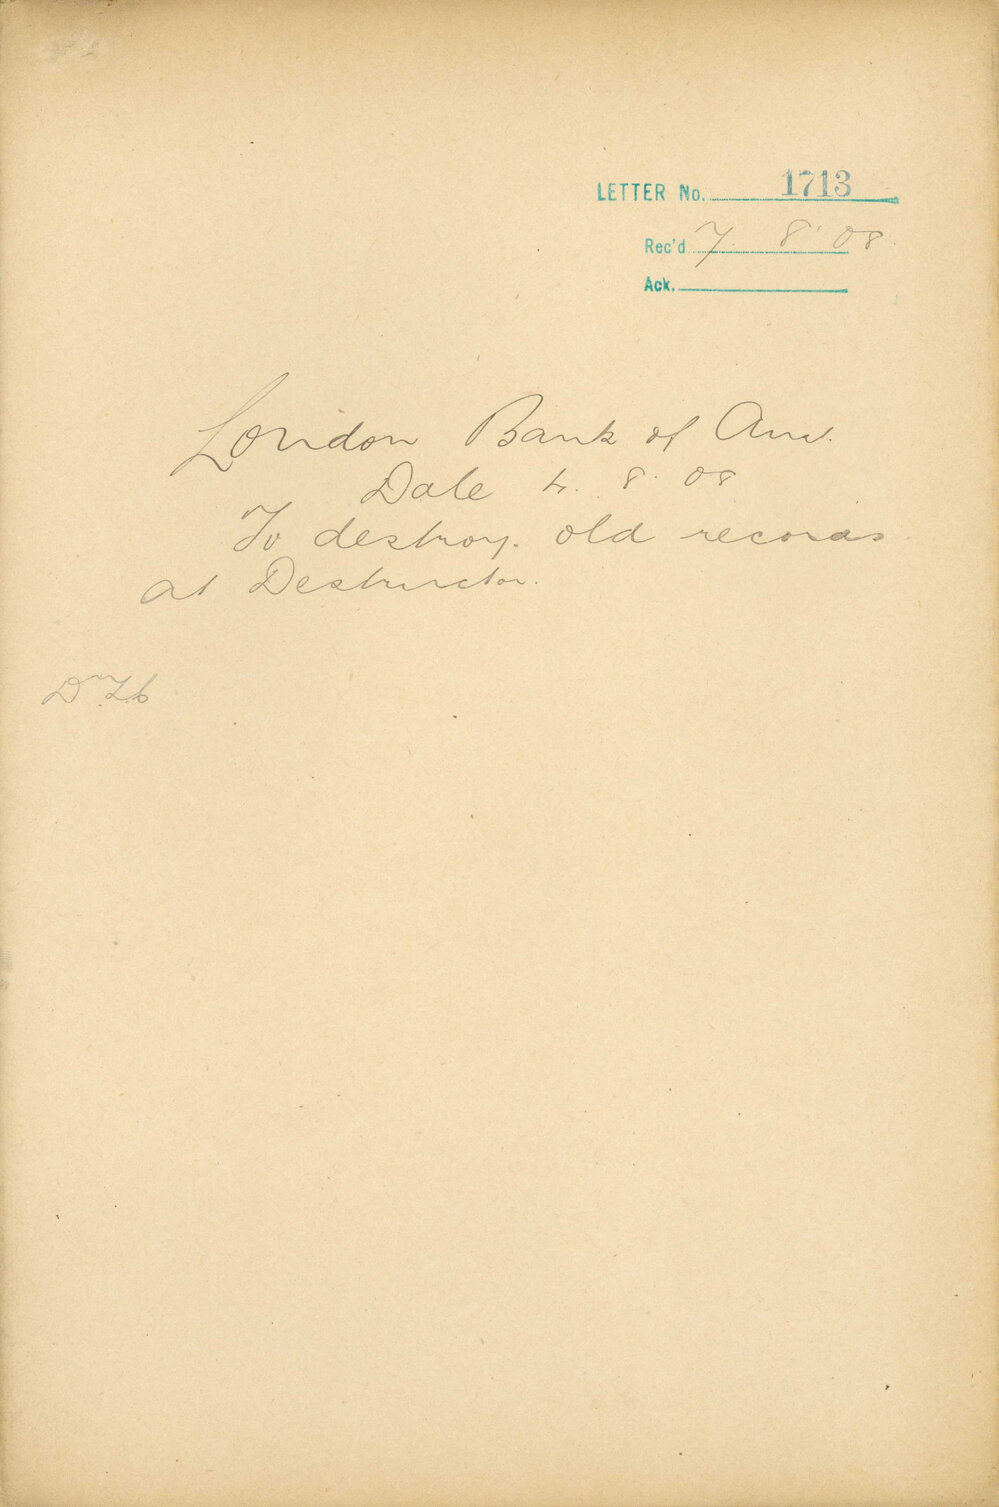 LETTER No. 1713
Rec'd 7. 8. 08.
Ack.
London Bank of Aus.
Date 4. 8. 08
To destroy old records
at Destructor.